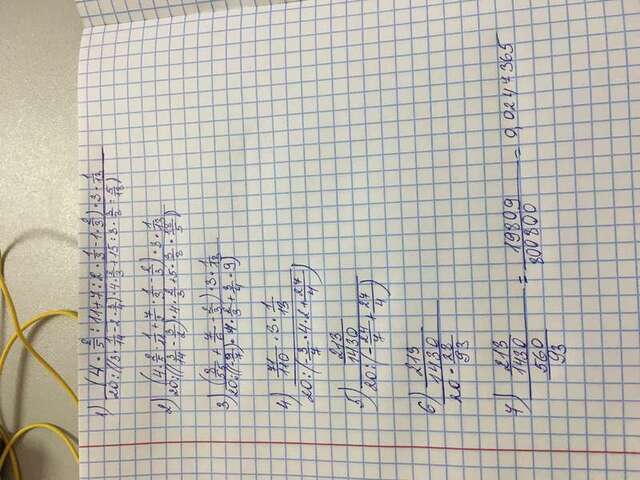 1) (4 · 2/5 : 11 + 7 : 2 · 1/3 - 1 · 2/3) · 3 · 1/13
20 : ((3 · 1/14 - 2 · 3/4) · 4 · 2/3 + 15 : 3 · 3/3 : 5/13)
2) (4 · 2/5 · 1/11 + 7/2 · 1/3 - 2/3) · 3 · 1/13
20 : ((3/14 - 3/2) · 4 · 2/3 + 5 · 3/3 · 13/5)
3) (8/55 + 7/6 - 2/3) · 3 · 1/13
20 : ((-9/7) · 4 · 2/3 + 3/4 · 9)
4) 71/110 · 3 · 1/13
20 : (-3/7 · 4 · 2 + 27/4)
5) 213/1430
20 : (-24/7 + 27/4)
6) 213/1430
20 · 28/93
7) 213/1430 = 19809/800800 = 0,0247365
560/93